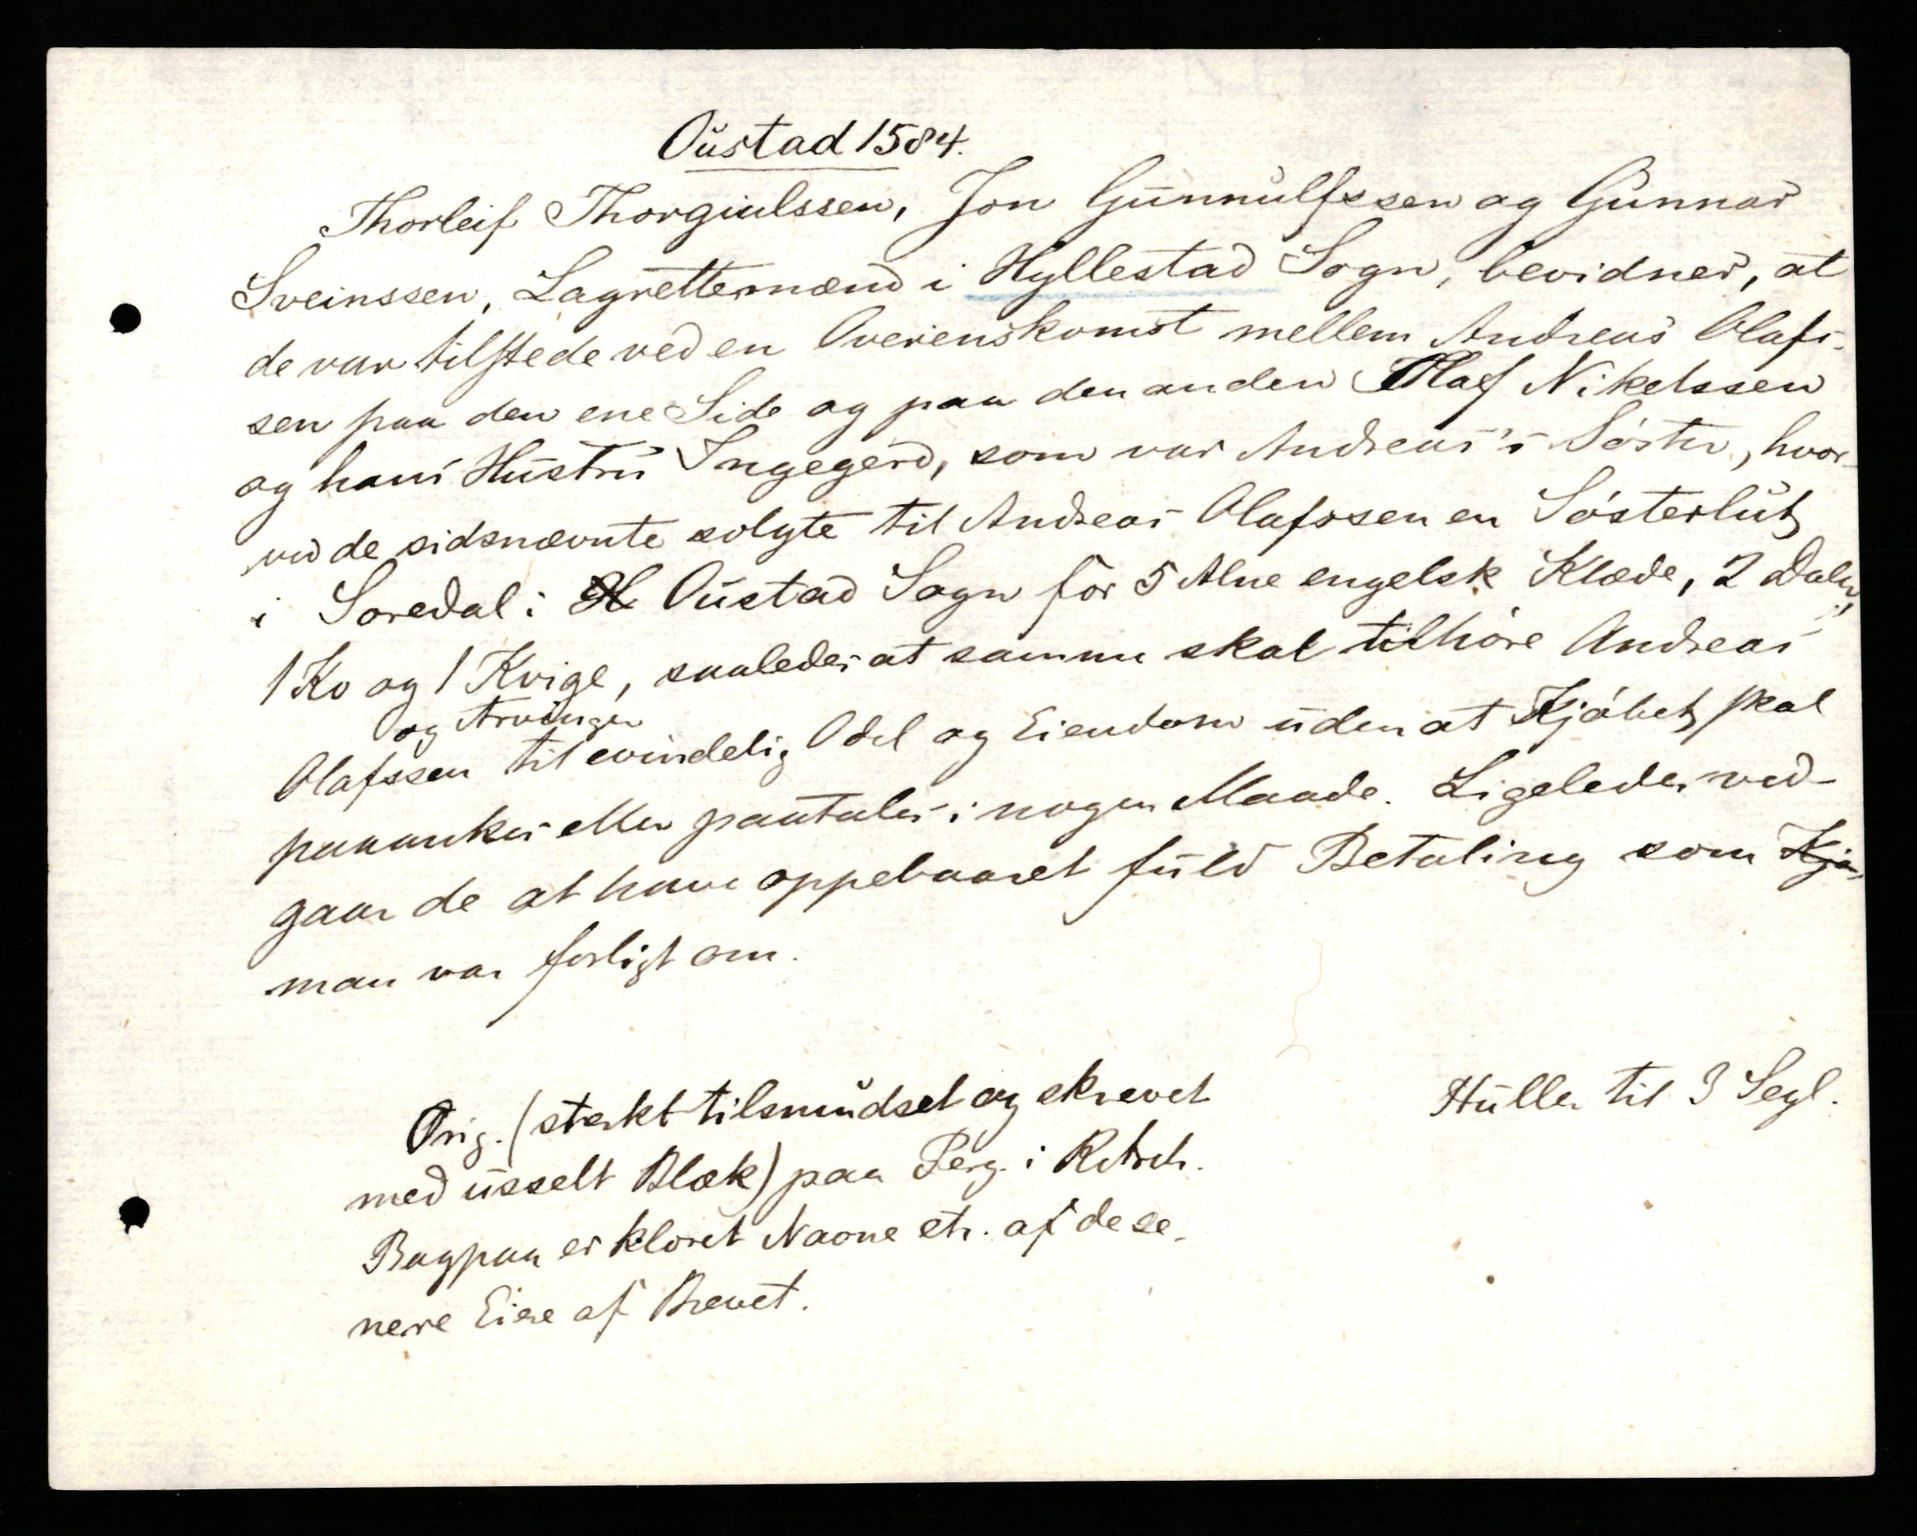 Oustad 1584.
Thorleif Thorgiulssen, Jon Gunnulfssen og Gunnar
Sveinssen, Lagrettemænd i Hyllestad Sogn, bevidner, at
de var tilstede ved en Overenskomst mellem Andreas Olafs-
sen paa den ene Side og paa den anden Olaf Nikelssen
og hans Hustru Ingegerd, som var Andreas's Søster, hvor-
ved de sidsnævnte solgte til Andreas Olafssen en Søsterlut
i Soredal i Oustad Sogn for 5 Alne engelsk Klæde, 2 Daler,
1 Ko og 1 Kvige, saaledes at samme skal tilhøre Andreas
og Arvinger
Olafssen til evindelig Odel og Eiendom uden at Kjøbet skal
paaankes eller paatales i nogen Maade. Ligeledes ved-
gaar de at have oppebaaret fuld Betaling som
man var forligt om.
Orig. (sterkt tilsmudset og skrevet
med usselt Blæk) paa Perg. i
Bagpaa er kloret Navne etc. af de se-
nere Eiere af Brevet.
Huller til 3 Segl.